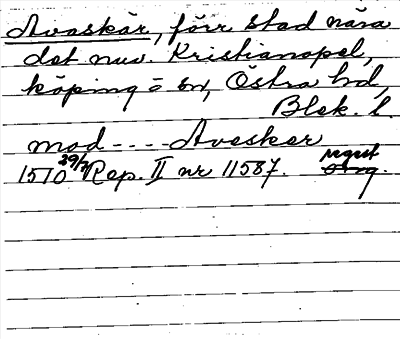 Avaskär, förr stad nära
det nuv. Kristianopel,
köping o. sn, Östra hd,
Blek. l.
mod - - - - Avesker
1510 29/7 Rep. II nr 11587. regest
orig.